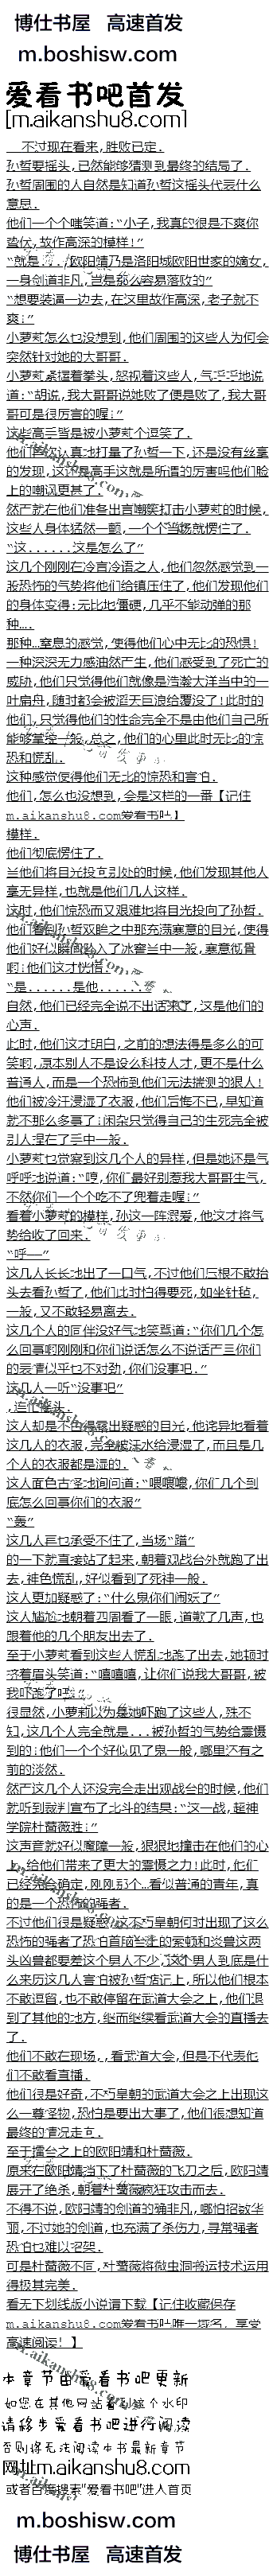 博仕书屋 高速首发
m.boshisw.com
爱看书吧首发
[m.aikanshu8.com]
不过现在看来,胜败已定.
孙哲要摇头,已然能够猜测到最终的结局了.
孙哲周围的人自然是知道孙哲这摇头代表什么
意思.
他们一个个嗤笑道:“小子,我真的很是不爽你
蛰伏,故作高深的模样!”
“就是...,欧阳靖乃是洛阳城欧阳世家的嫡女,
一身剑道非凡,岂是那么容易落败的”
“想要装逼一边去,在这里故作高深,老子就不
爽!”
小萝莉怎么也没想到,他们周围的这些人为何会
突然针对她的大哥哥.
小萝莉紧握着拳头,怒视着这些人,气呼呼地说
道:“胡说,我大哥哥说她败了便是败了,我大哥
哥可是很厉害的喔!”
这些高手皆是被小萝莉个逗笑了.
他们皆是认真地打量了孙哲一下,还是没有丝毫
的发现,这还是高手这就是所谓的厉害吗他们脸
上的嘲讽更甚了.
然而就在他们准备出言嘲笑打击小萝莉的时候,
这些人身体猛然一颤,一个个当场就愣住了.
“这......这是怎么了”
这几个刚刚在冷言冷语之人,他们忽然感觉到一
股恐怖的气势将他们给镇压住了,他们发现他们
的身体变得:无比地僵硬,几乎不能动弹的那
种...
那种...窒息的感觉,使得他们心中无比的恐惧!
一种深深无力感油然产生,他们感受到了死亡的
威胁,他们只觉得他们就像是浩瀚大洋当中的一
叶扁舟,随时都会被滔天巨浪给覆没了!此时的
他们,只觉得他们的性命完全不是由他们自己所
能够掌控一般,总之,他们的心里此时无比的惊
恐和慌乱.
这种感觉使得他们无比的惊恐和害怕.
他们,怎么也没想到,会是这样的一番【记住
m.aikanshu8.com爱看书吧】
模样.
他们彻底愣住了.
当他们将目光投向别处的时候,他们发现其他人
毫无异样,也就是他们几人这样.
这时,他们惊恐而又艰难地将目光投向了孙哲.
他们看到孙哲双眸之中那充满寒意的目光,使得
他们好似瞬间坠入了冰窖当中一般,寒意彻骨
啊!他们这才恍悟.
“是......是他......”
自然,他们已经完全说不出话来了,这是他们的
心声.
此时,他们这才明白,之前的想法得是多么的可
笑啊,原本别人不是设么科技人才,更不是什么
普通人,而是一个恐怖到他们无法揣测的狠人!
他们被冷汗浸湿了衣服,他们后悔不已,早知道
就不那么多事了!闲杂只觉得自己的生死完全被
别人捏在了手中一般.
小萝莉也觉察到这几个人的异样,但是她还是气
呼呼地说道:“哼,你们最好别惹我大哥哥生气,
不然你们一个个吃不了兜着走喔!”
看着小萝莉的模样,孙这一阵溺爱,他这才将气
势给收了回来.
“呼——”
这几人长长地出了一口气,不过他们压根不敢抬
头去看孙哲了,他们此时怕得要死,如坐针毡,
一般,又不敢轻易离去.
这几个人的同伴没好气地笑骂道:“你们几个怎
么回事啊刚刚和你们说话怎么不说话产三你们
的表情似乎也不对劲,你们没事吧.”
这几人一听“没事吧”
,连忙摇头.
这人却是不由得露出疑惑的目光,他诧异地看着
这几人的衣服,完全被汗水给浸湿了,而且是几
个人的衣服都是湿的.
这人面色古怪地询问道:“喂喂嘿,你们几个到
底怎么回事你们的衣服”
“轰”
这几人再也承受不住了,当场“蹭”
的一下就直接站了起来,朝着观战台外就跑了出
去,神色慌乱,好似看到了死神一般.
这人更加疑惑了:“什么鬼你们闹妖了”
这人尴尬地朝着四周看了一眼,道歉了几声,也
跟着他的几个朋友出去了.
至于小萝莉看到这些人慌乱地跑了出去,她顿时
挤着眉头笑道:“嘻嘻嘻,让你们说我大哥哥,被
我吓跑了吧.”
很显然,小萝莉以为是她吓跑了这些人,殊不
知,这几个人完全就是...被孙哲的气势给震慑
到的!他们一个个好似见了鬼一般,哪里还有之
前的淡然.
然而这几个人还没完会走出观战台的时候,他们
就听到裁判宣布了北斗的结果:“这一战,超神
学院杜蔷薇胜!”
这声音就好似魔障一般,狠狠地撞击在他们的心
上,给他们带来了更大的震慑之力!此时,他们
已经完全确定,刚刚那个...看似普通的青年,真
的是一个恐怖的强者.
不过他们很是疑惑,这不朽皇朝何时出现了这么
恐怖的强者了恐怕首脑台上的索顿和炎曾这两
头凶兽都要差这个男人不少,这个男人到底是什
么来历这几人害怕被孙哲惦记上,所以他们根本
不敢逗留,也不敢停留在武道大会之上,他们退
到了其他的地方,继而继续看武道大会的直播去
了.
他们不敢在现场,,看武道大会,但是不代表他
们不敢看直播.
他们很是好奇,不朽皇朝的武道大会之上出现这
么一尊怪物,恐怕是要出大事了,他们很想知道
最终的情况走向.
至于擂台之上的欧阳靖和杜蔷薇.
原来在欧阳靖挡下了杜蔷薇的飞刀之后,欧阳靖
展开了绝杀,朝着杜蔷薇疯狂攻击而去.
不得不说,欧阳靖的剑道的确非凡,哪怕招数华
丽,不过她的剑道,也充满了杀伤力,寻常强者
恐怕也难以招架.
可是杜蔷薇不同,杜蔷薇将微虫洞搬运技术运用
得极其完美.
看无下划线版小说请下载【记住收藏保存
m.aikanshu8.com爱看书吧唯一域名,享受
高速阅读!】
本章节由爱看书吧更新
如您在其他网站看到这个水印
请移步爱看书吧进行阅读
否则将无法阅读本书最新章节
网址m.aikanshu8.com
或者百度搜索“爱看书吧”进入首页
m.boshisw.com
博仕书屋 高速首发